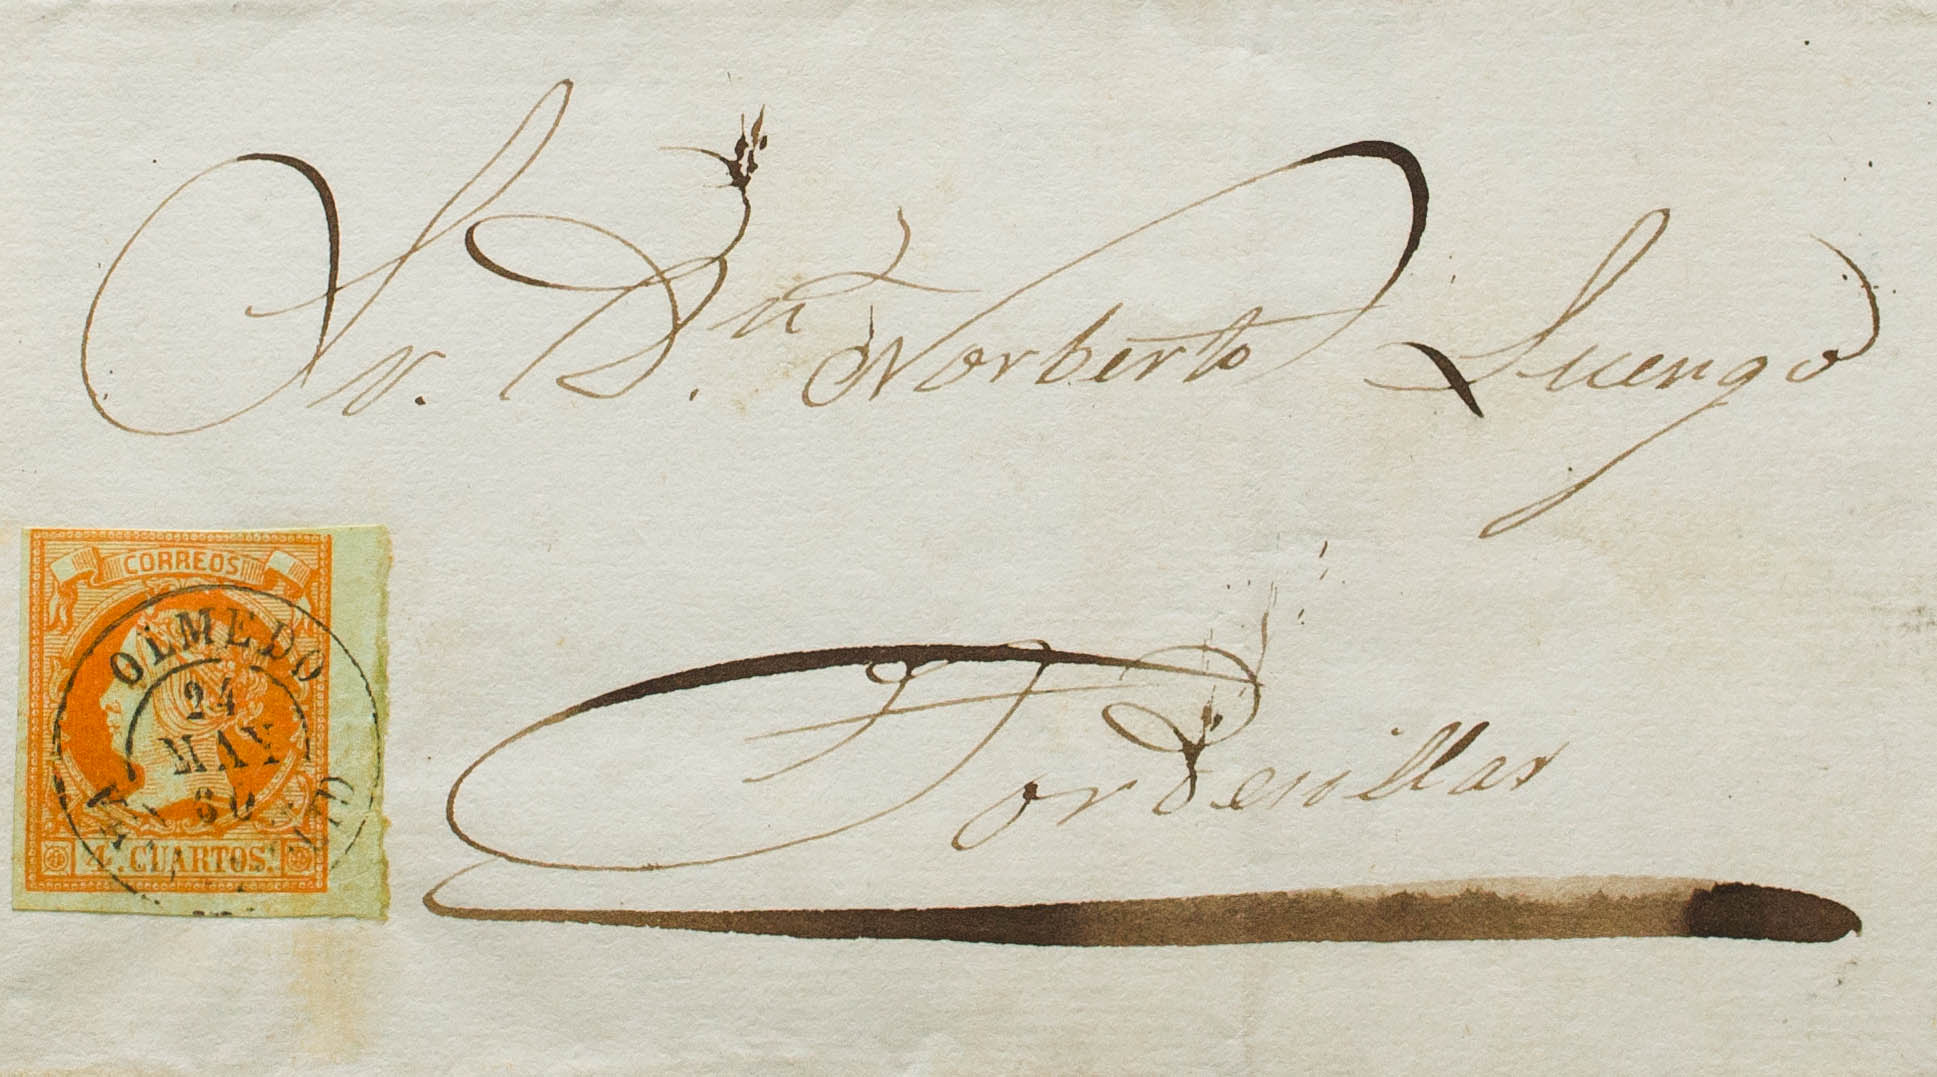 Sr. Dn. Norberto Luengo
CORREOS
OLMEDO
24
MAY
60
4 CUARTOS.
Tordesillas